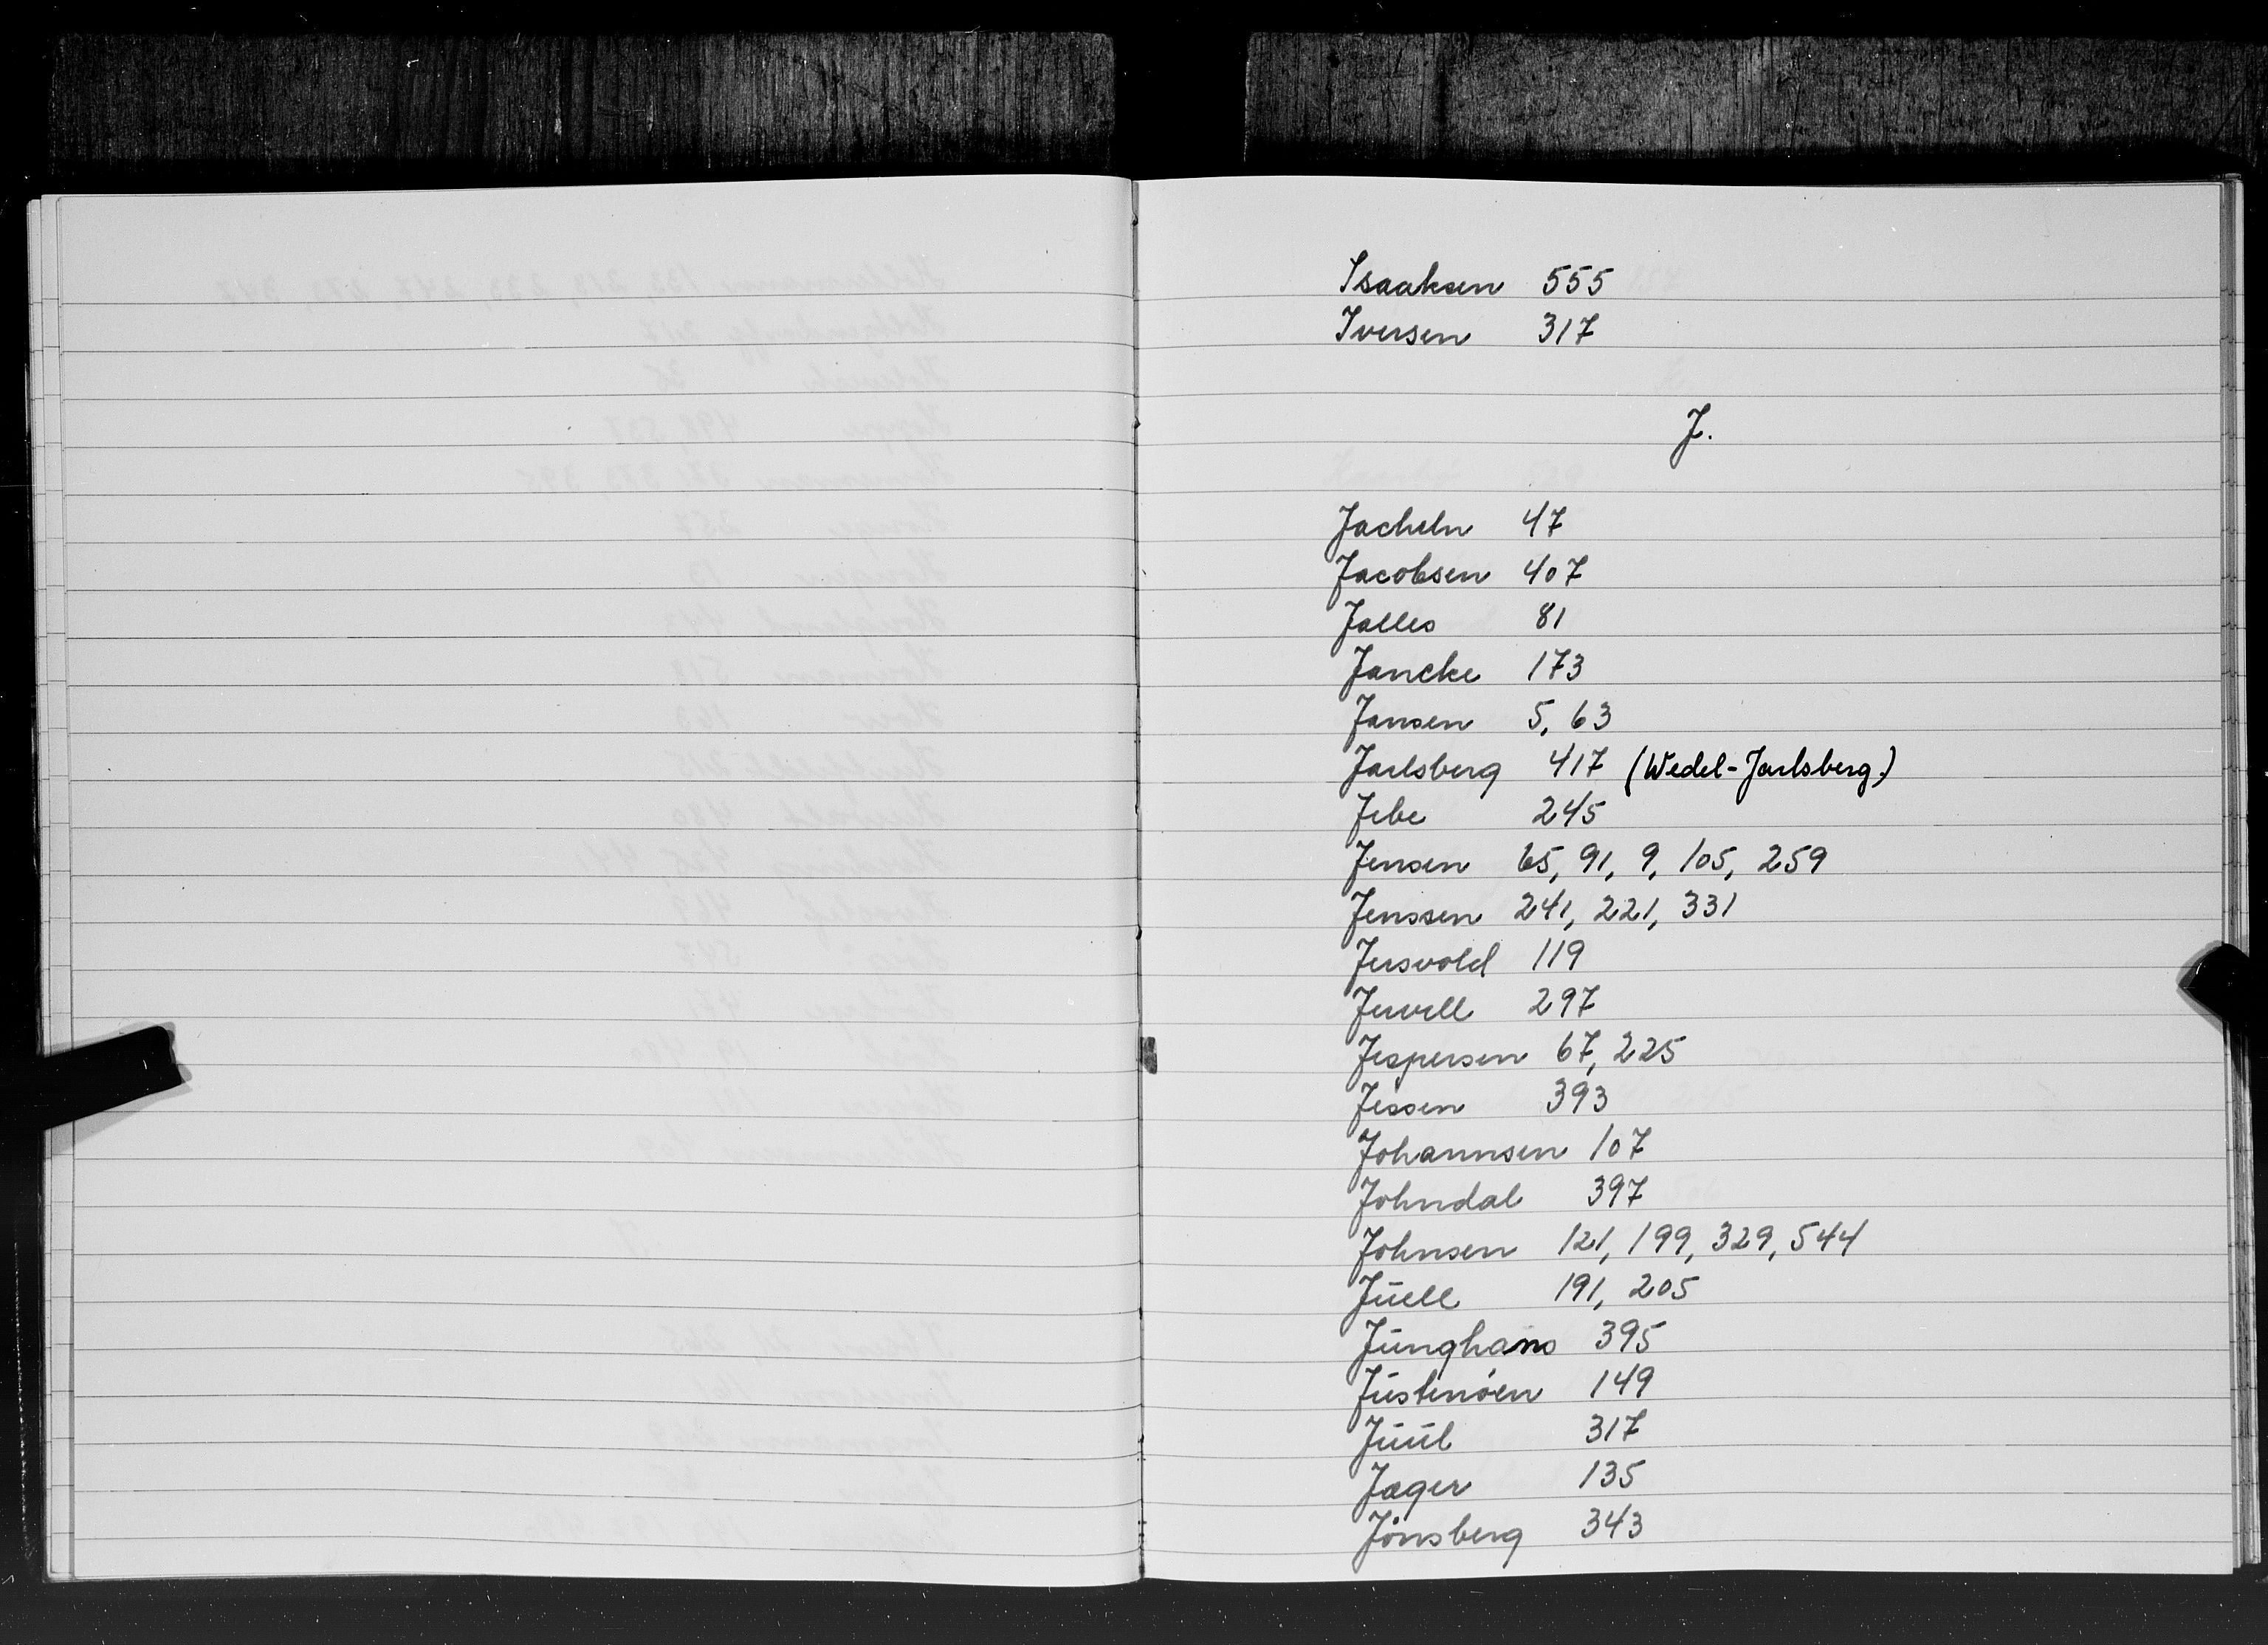 Isaaksen 555
Iversen 317
J.
Jacheln 47
Jacobsen 407
Jalles 81
Jancke 173
Jansen 5, 63
Jarlsberg 417 (Wedel-Jarlsberg.)
Jebe 245
Jensen 65, 91, 9, 105, 259
Jenssen 241, 221, 331
Jersvold 119
Jervell 297
Jespersen 67, 225
Jessen 393
Johannsen 107
Johndal 397
Johnsen 121, 199, 329, 544
Jŭell 191, 205
Jŭnghans 395
Jŭstenöen 149
Jŭŭl 317
Jager 135
Jönsberg 343